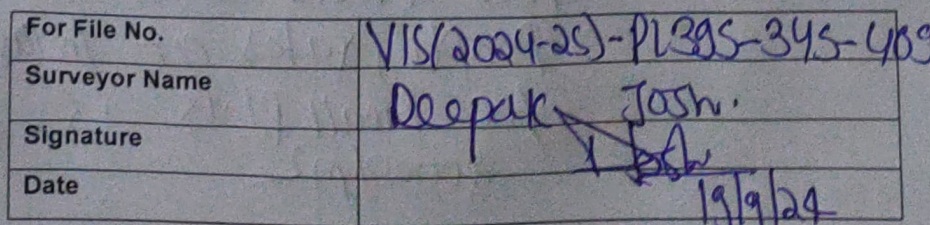 For File No. VIS(2024-25)-PL395-345-469
Surveyor Name Deepak Joshi
Signature
Date 19/9/24